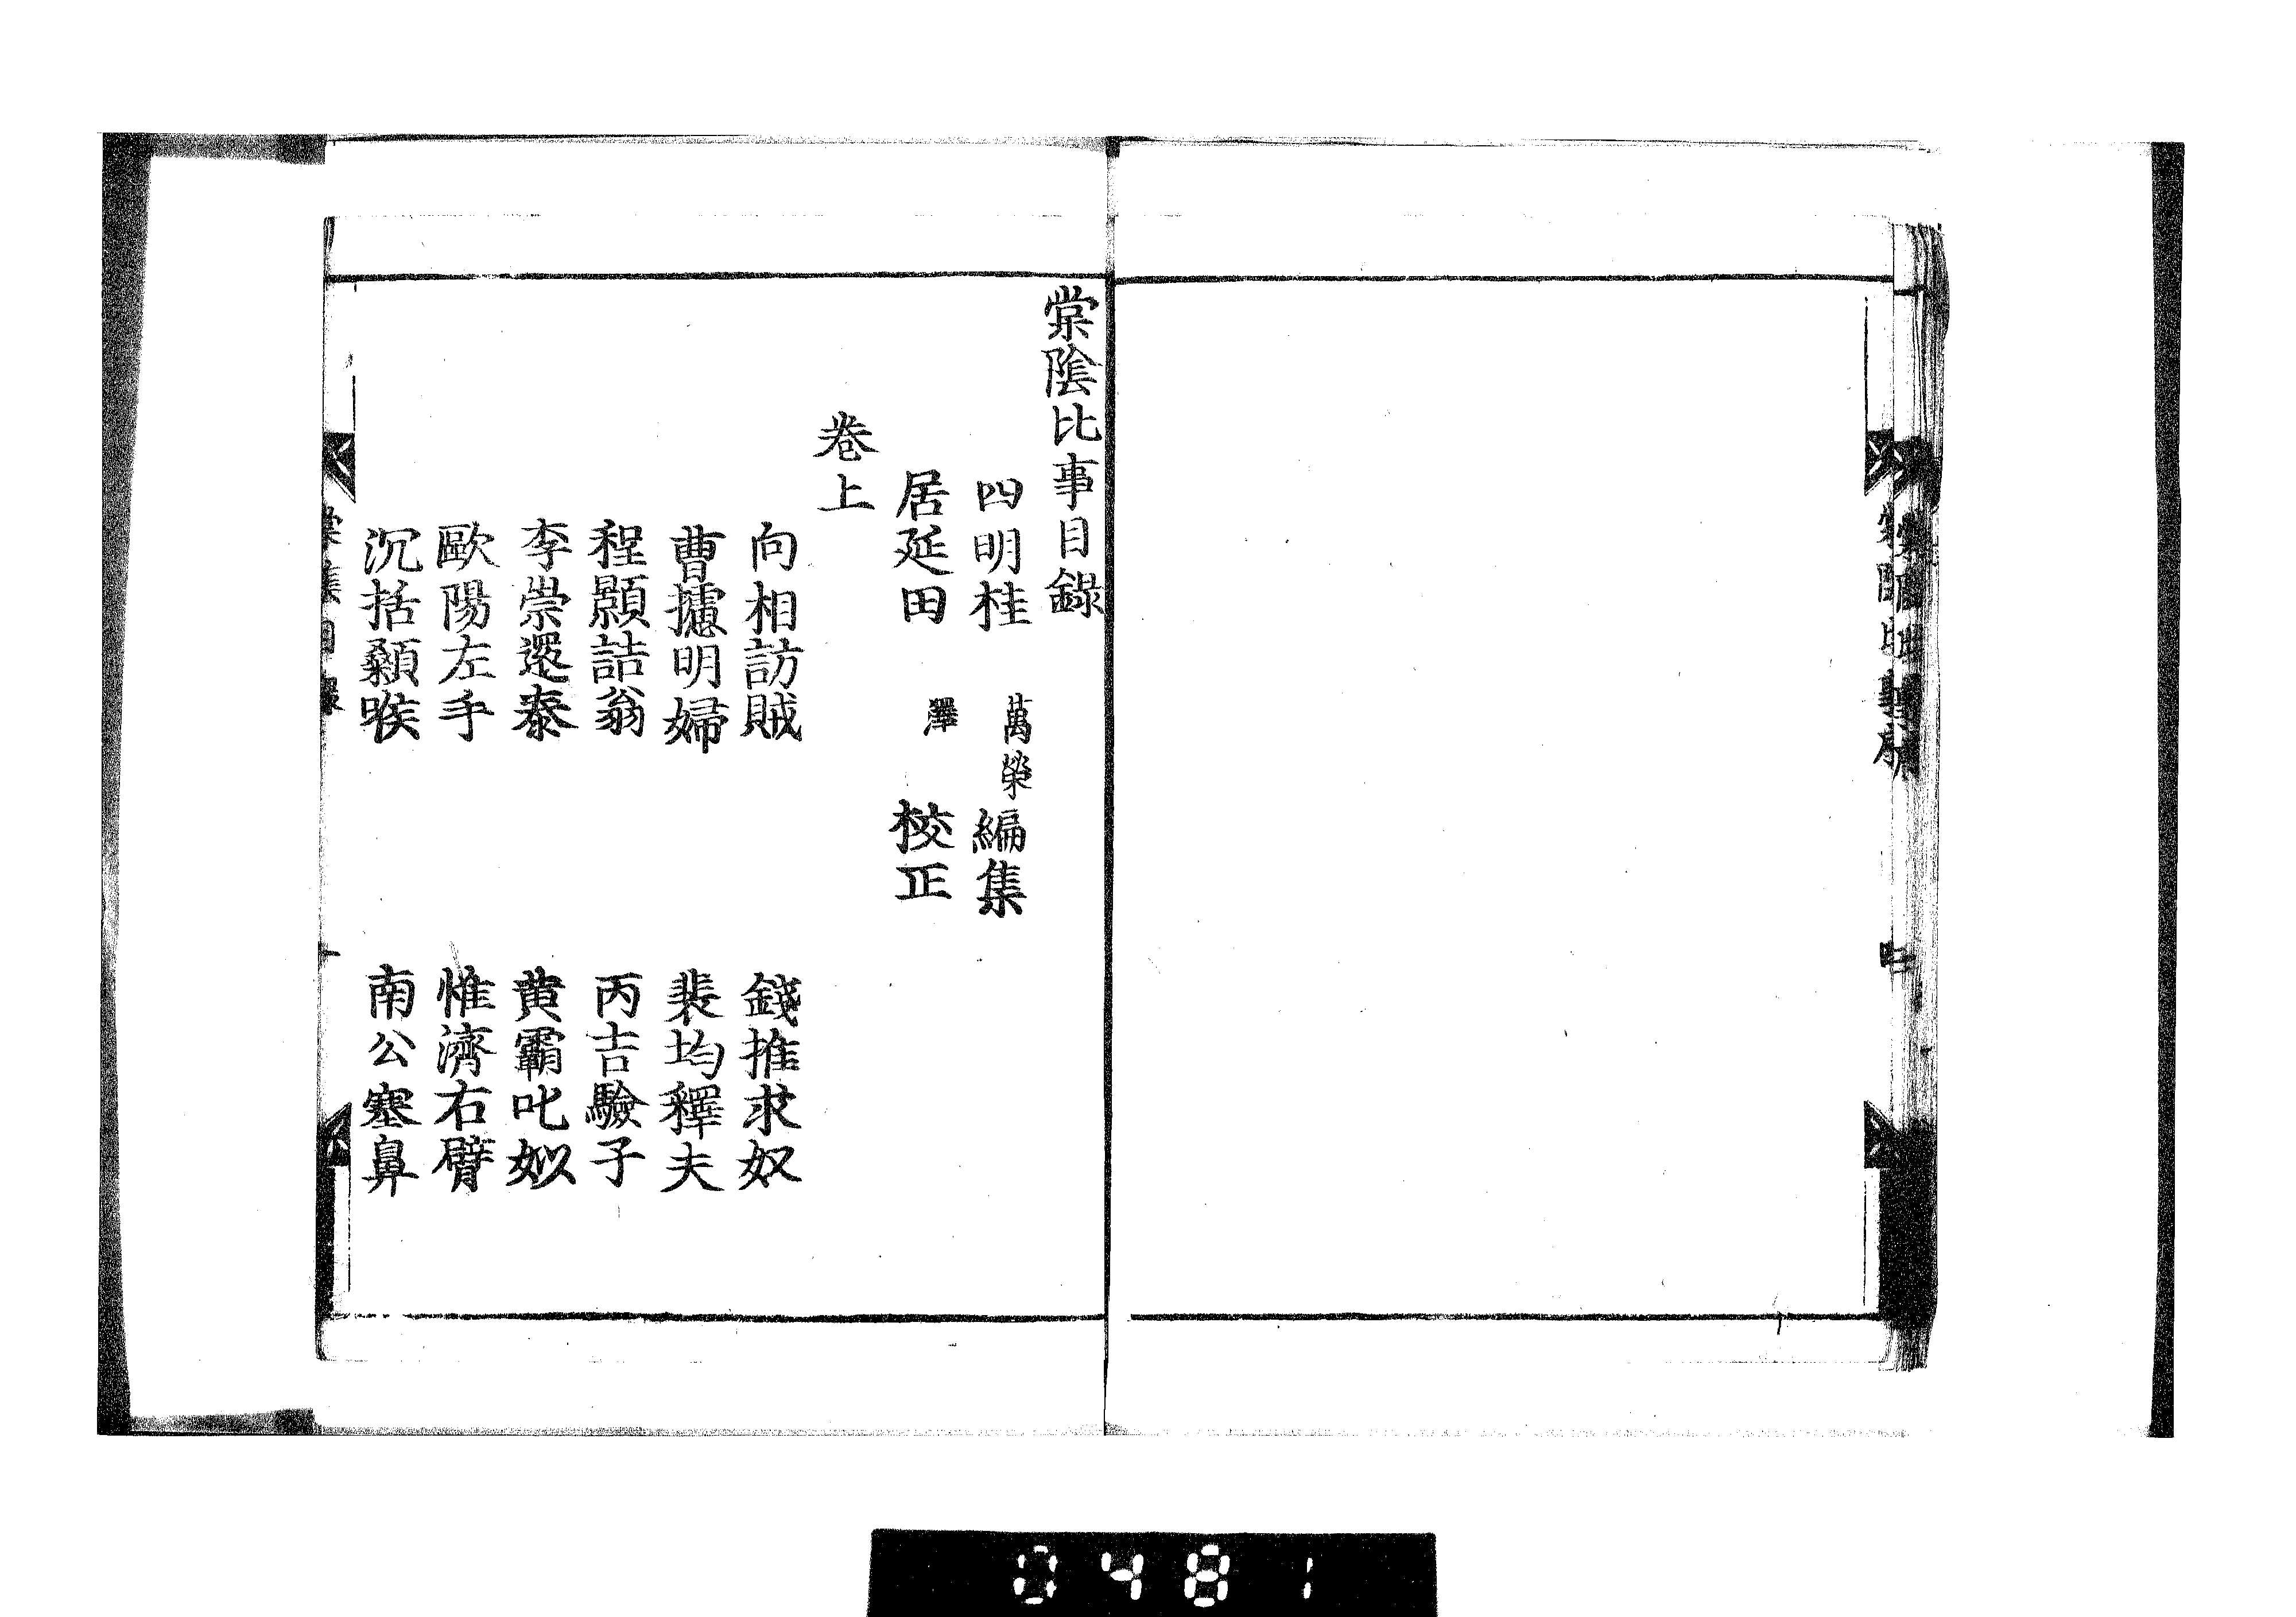 棠陰比事目録
四明桂 萬榮 編集
居延田 澤 校正
巻上
向相訪賊 錢推求奴
曹攄明婦 裴均釋夫
程顥詰翁 丙吉驗子
李崇還泰 黄霸叱姒
歐陽左手 惟濟右臂
沉括顙喉 南公塞鼻
0481